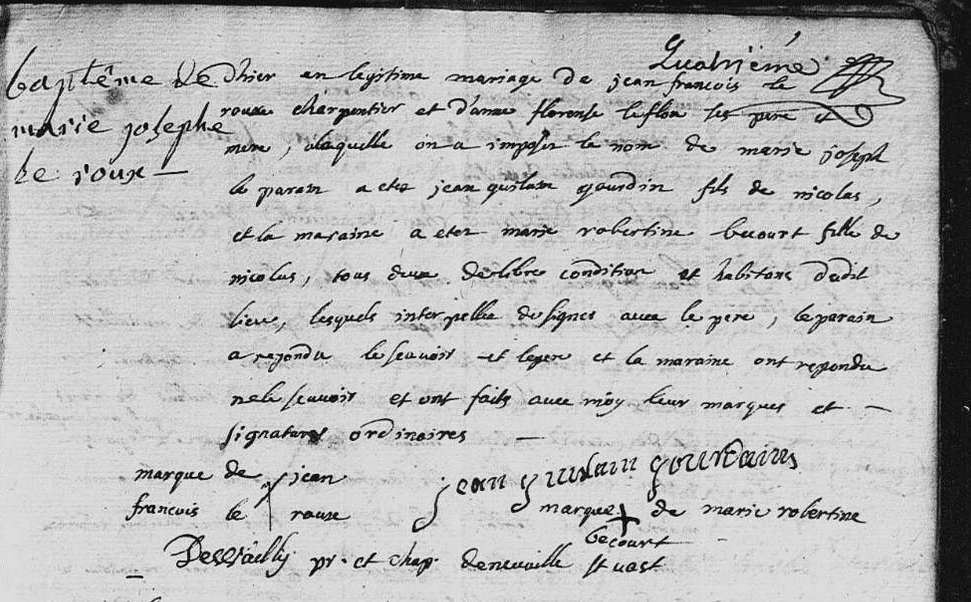 Quatriéme
baptême de
marie josephe
le roux —
d'hier en legitime mariage de jean francois le
roux charpentier et d'anne florence leflon les pere et
mere, a laquelle on a imposer le nom de marie joseph
le parain a eter jean guilain gourdin fils de nicolas,
et la maraine a eter marie robertine becourt fille de
nicolas, tous deux de libre condition et habitans dudit
lieu, lesquels interpellé de signer avec le pere, le parain
a repondu le scavoir et le pere et la maraine ont repondu
ne le scavoir et ont faits avec moy leur marques et —
signatures ordinaires —
marque de jean
francois le roux
jean guilain gourdain
marque de marie robertine
becourt
pr. et chap. de neuville st vast